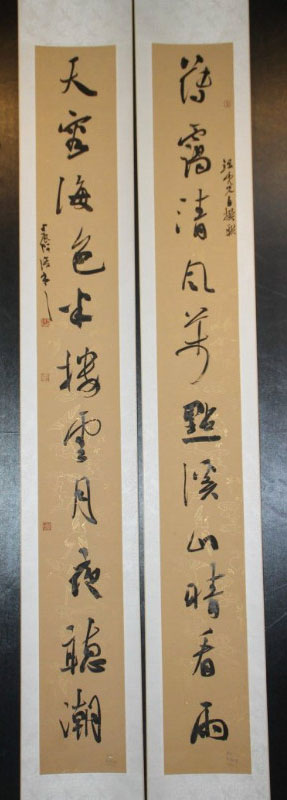 薄靄清風萬點溪山晴看雨
天容海色半樓雲月夜聽潮